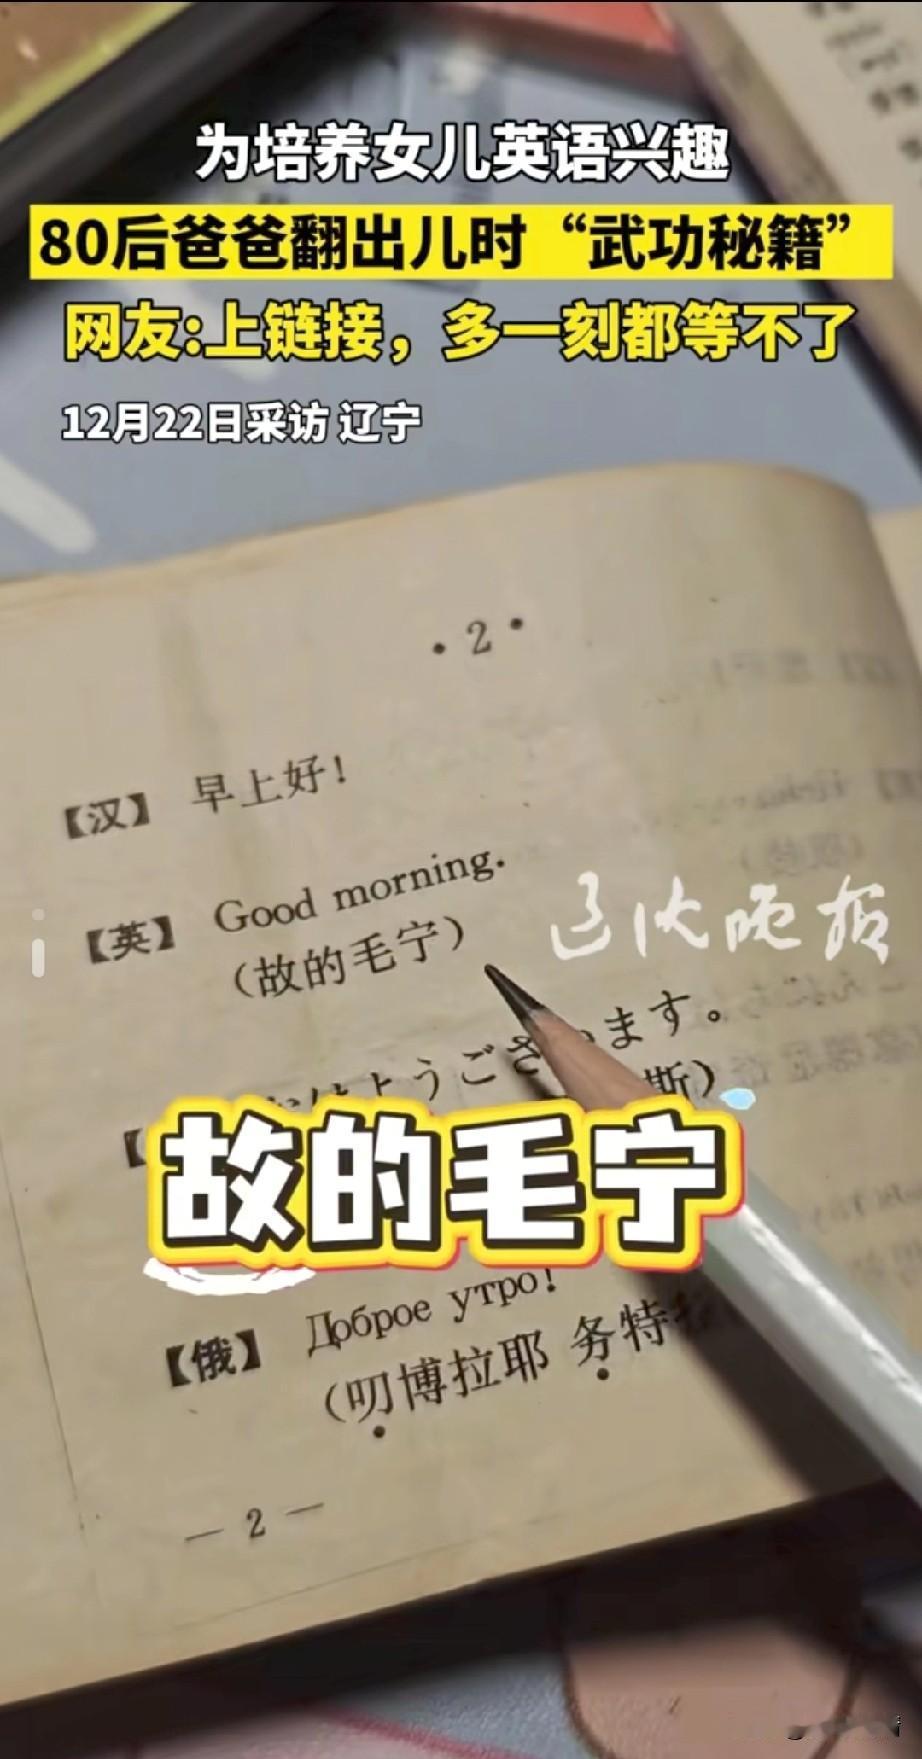 为培养女儿英语兴趣
80后爸爸翻出儿时“武功秘籍”
网友:上链接，多一刻都等不了
12月22日采访 辽宁
·2·
【汉】 早上好！
【英】 Good morning.
（故的毛宁）
辽沈晚报
おはようございます。
斯）
故的毛宁
【俄】 Доброе утро!
（叨博拉耶 务特
— 2 —